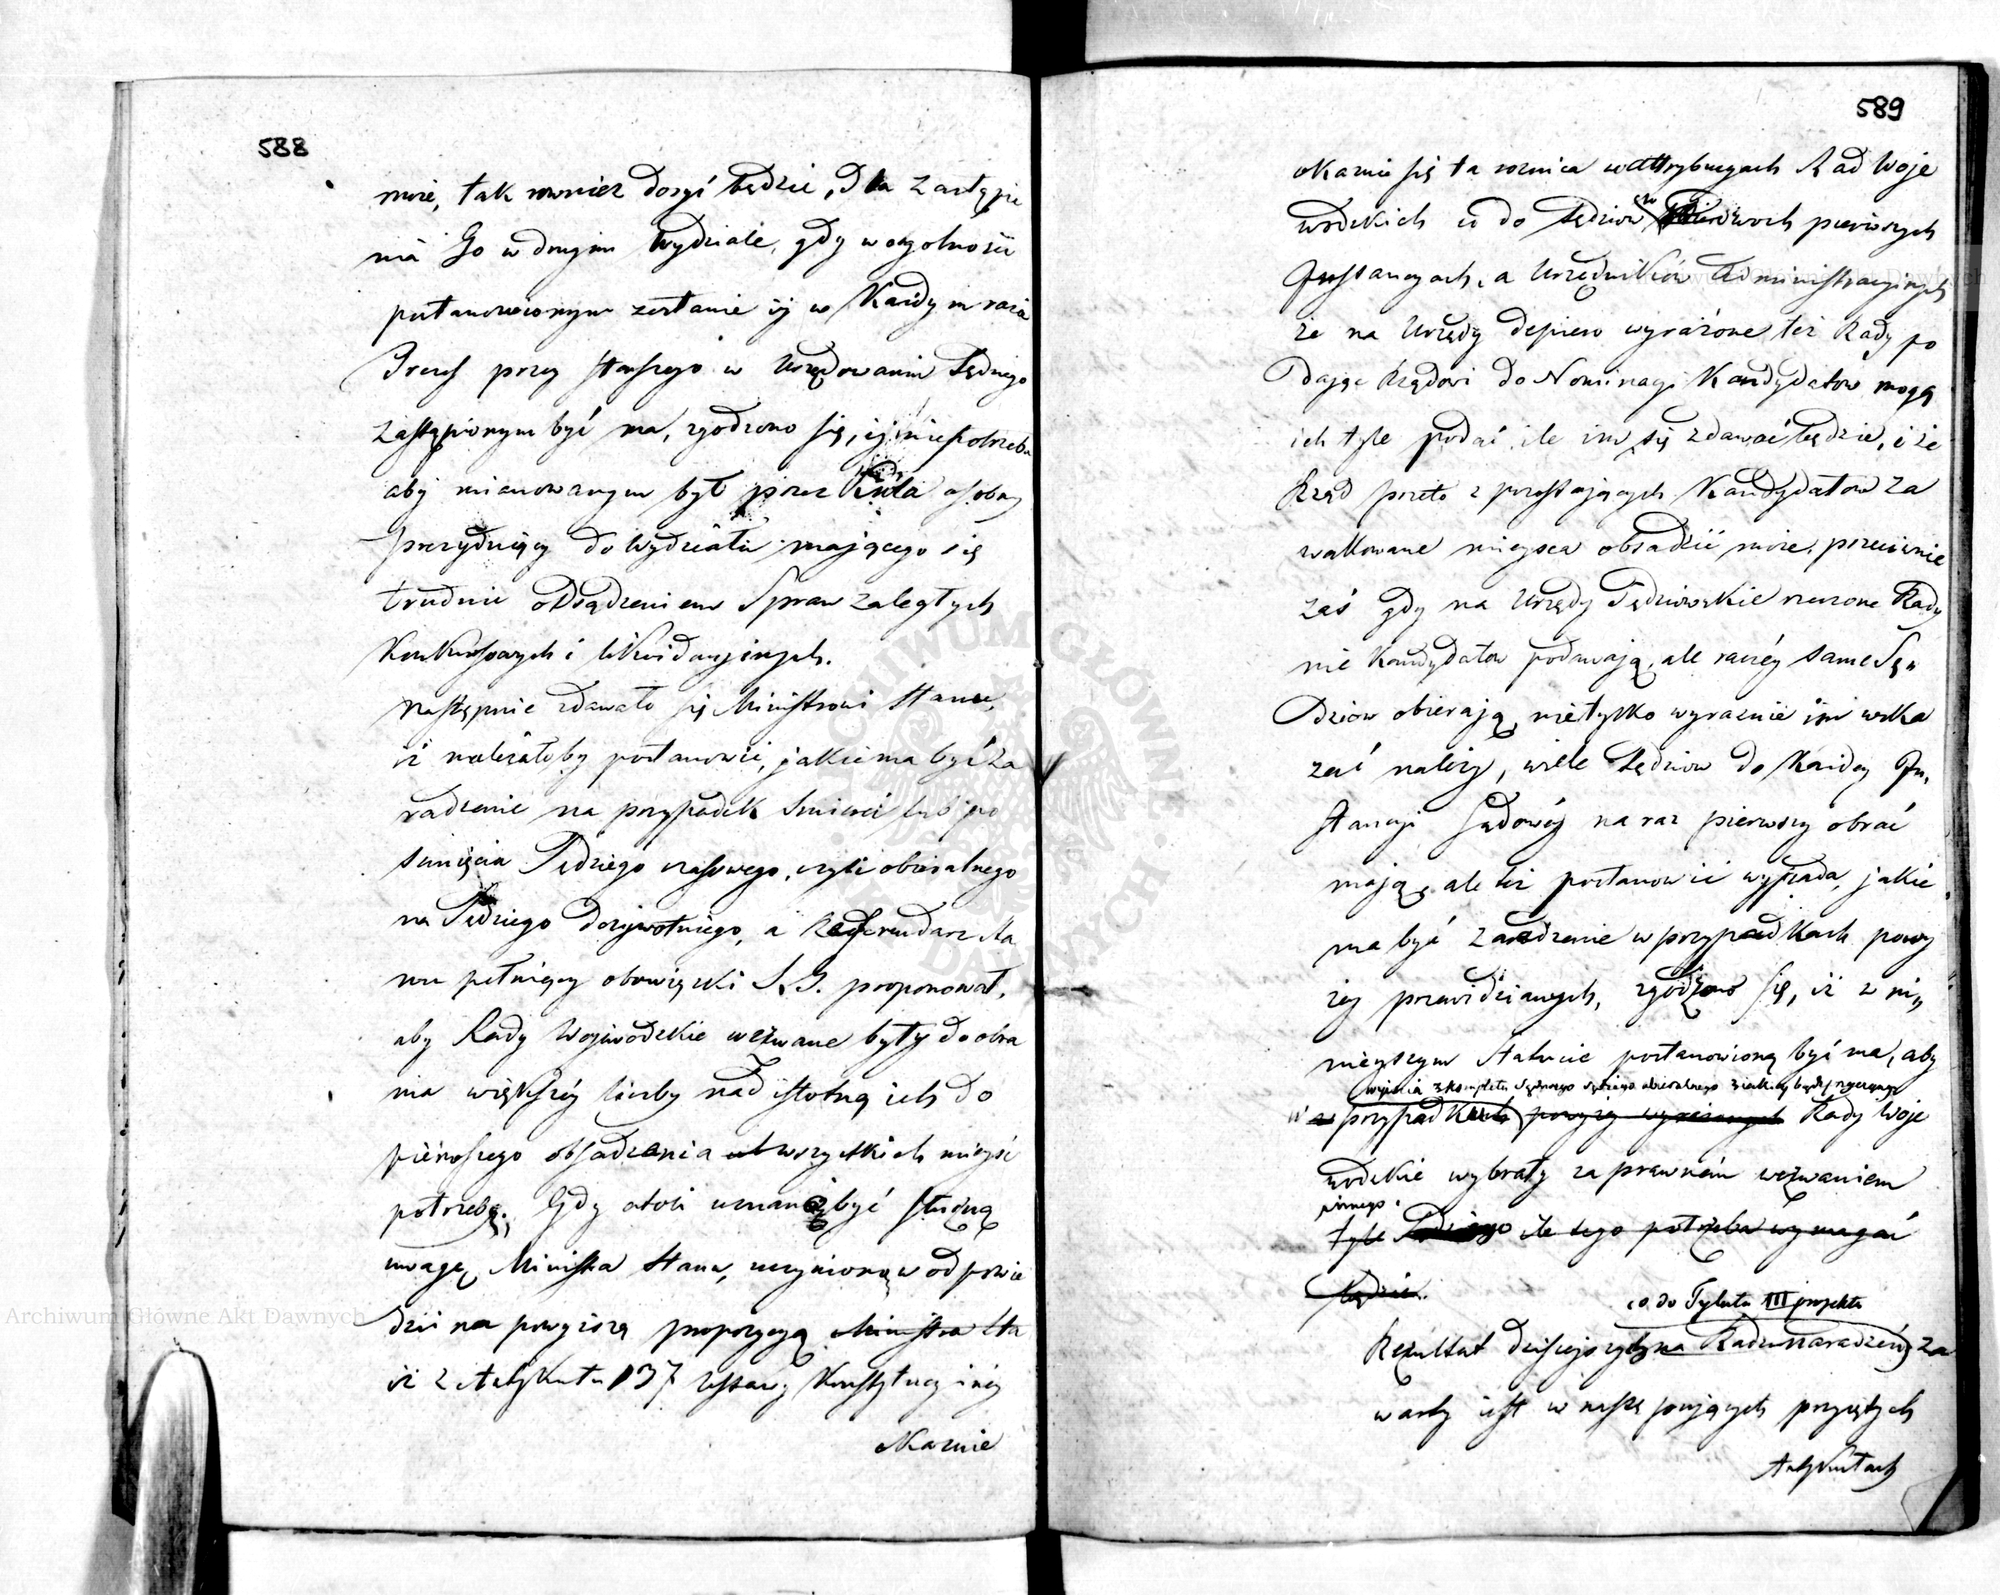 588
może, tak rownież dosyć będzie, Dla Zastąpie
nia Go w drugim Wydziale, gdy w ogolności
postanowionym zostanie iż w Każdym razie
Prezes przez starszego w Urzędowaniu Sędziego
zastąpionym być ma, zgodzono się, iż niepotrzeba
aby mianowanym był przez Króla osobny
prezyduiący do Wydziału maiącego się
trudnić osądzeniem Spraw zaległych
Konkursowych i likwidacyinych.
Następnie zdawało się Ministrowi Stanu,
iż należałoby postanowić, jakie ma być za
radzenie na przypadek Smierci lub po
sunięcia Sędziego czasowego, czyli obieralnego
na Sędziego dożywotniego, a Referendarz Sta
nu pełniący obowiązki S. J. proponował,
aby Rady Woiewodzkie wezwane były do obra
nia większéy liczby nad istotną ich do
pierwszego obsadzenia wszystkich mieysc
potrzebę. Gdy atoli uznano być słuszną
uwagę Ministra Stanu, uczynioną w odpowie
dzi na powyższą propozycyą Ministra Sta
iż z Artykułu 137 Ustawy Konstytucyinéy
Okazuie
589
okazuie się ta roznica w attrybucyach Rad Woie
wodzkich co do Sędziow w pierwszych
Instancyach, a Urzędnikow Administracyinych
że na Urzędy dopiero wyrażone też Rady po
daiąc Rządowi do Nominacyi Kandydatow mogą
ich tyle podać, ile im się zdawać będzie, i że
Rząd przeto z pozostaiących Kandydatow za
wakowane mieysca obsadzić może, przeciwnie
zaś gdy na Urzędy Sędziowskie rzeczone Rady
nie Kandydatow podawaią, ale raczéy same Sę„
dziow obieraią, nietylko wyraznie im wska
zać należy, wiele Sędziow do Każdey In„
stancyi Sądowéy na raz pierwszy obrać
maią, ale też postanowić wypada, jakie
ma być zaradzenie w przypadkach powy
żey przewidzianych, zgodzono się, iż w ni„
nieyszym Statucie postanowioną być ma, aby
wyiścia z kompletu Sądowego Sędziego obieralnego z iakiey bądź przyczyny
w przypadkach powyżey wyrażonych Rady Woie
wodzkie wybrały za prawném wezwaniem
innego.
tyle Sędziego ile tego potrzeba wymagać
będzie.
co do Tytułu III projektu
Rezultat dzisieyszych na Radzie naradzeń za
warty iest w następuiących przyiętych
Artykułach